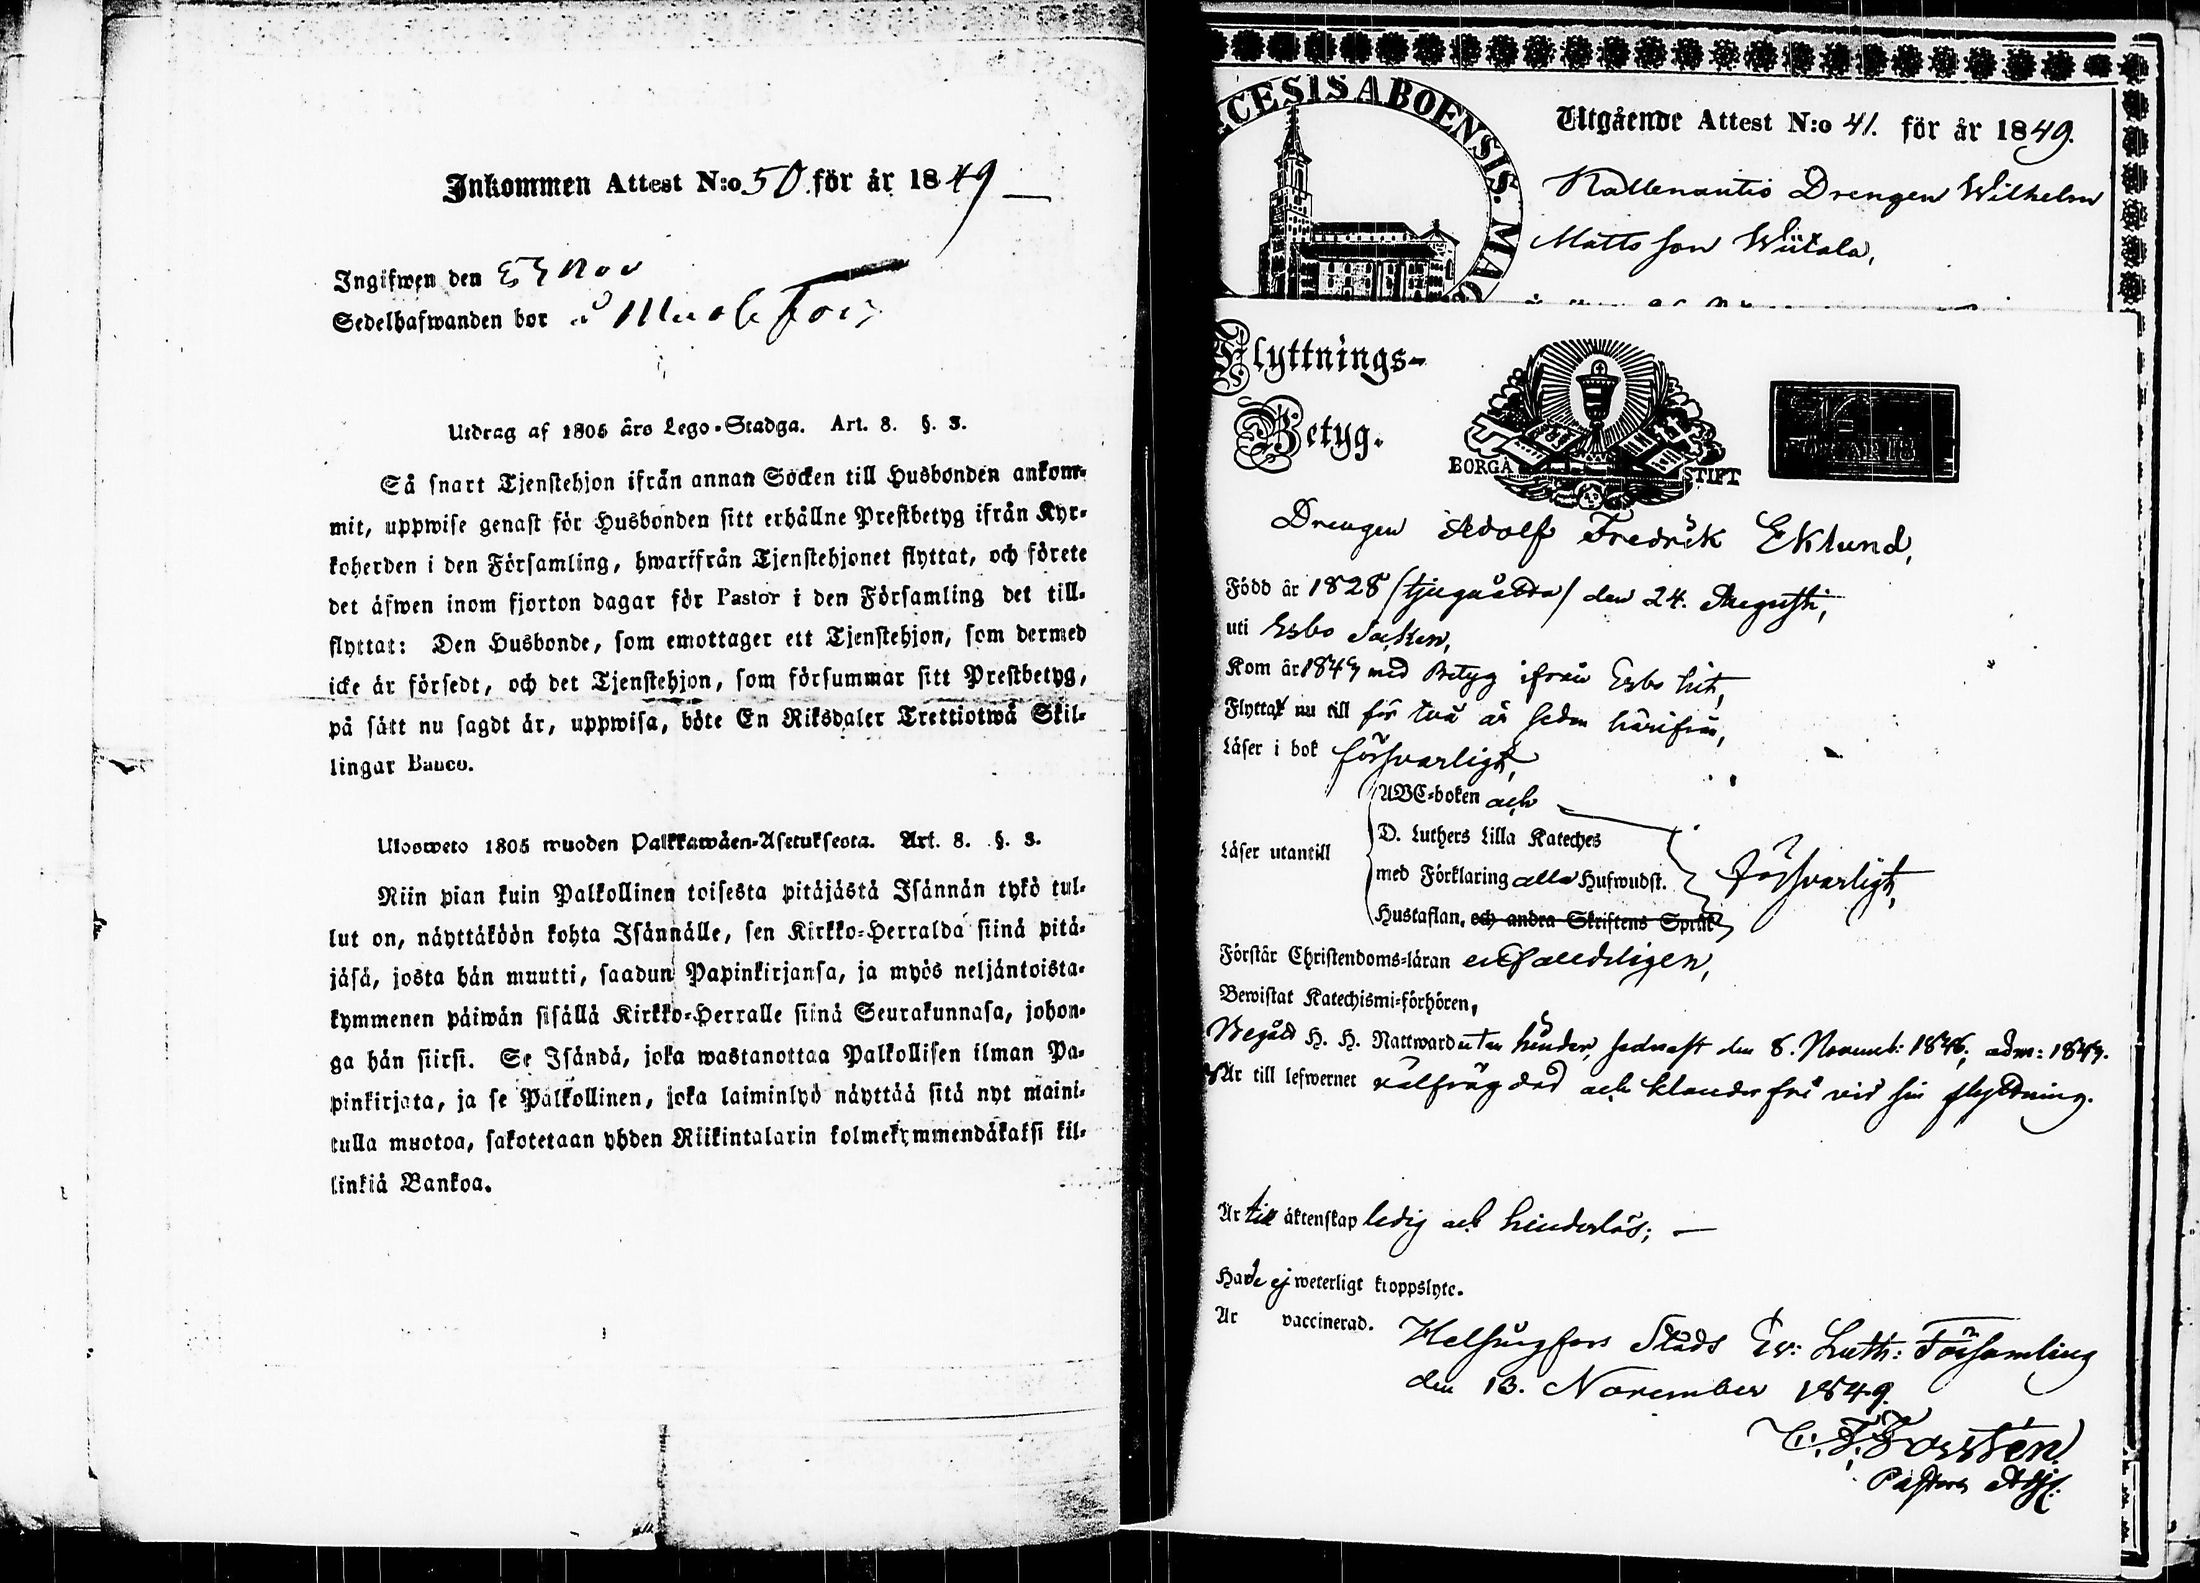 Inkommen Attest N:o 50 för år 1849
Ingifwen den Nov
Sedelhafwanden bor i
Utdrag af 1805 års Lego-Stadga. Art. 8. §. 3.
Så snart Tjenstehjon ifrån annan Socken till Husbonden ankom-
mit, uppwise genast för Husbonden sitt erhållne Prestbetyg ifrån Kyr-
koherden i den Församling, hwarifrån Tjenstehjonet flyttat, och förete
det äfwen inom fjorton dagar för Pastor i den Församling det till-
flyttat: Den Husbonde, som emottager ett Tjenstehjon, som dermed
icke är försedt, och det Tjenstehjon, som försummar sitt Prestbetyg,
på sätt nu sagdt är, uppwisa, böte En Riksdaler Trettiotwå Skil-
lingar Banco.
Ulosweto 1805 wuoden Palkkawäen-Asetuksesta. Art. 8. §. 3.
Niin pian kuin Palkollinen toisesta pitäjästä Isännän tykö tul-
lut on, näyttäköön kohta Isännälle, sen Kirkko-Herralda siinä pitä-
jäsä, josta hän muutti, saadun Papinkirjansa, ja myös neljäntoista-
kymmenen päiwän sisällä Kirkko-Herralle siinä Seurakunnasa, johon-
ga hän siirsi. Se Isändä, joka wastanottaa Palkollisen ilman Pa-
pinkirjata, ja se Palkollinen, joka laiminlyö näyttää sitä nyt maini-
tulla muotoa, sakotetaan yhden Riikintalarin kolmekymmendäkaksi kil-
linkiä Bankoa.
CESIS ABOENSIS. MA
Utgående Attest N:o 41. för år 1849.
Drengen Wilhelm
Mattsson Wiitala,
Flyttnings-
Betyg.
BORGÅ STIFT
FÖR ÅR 18
Drengen Adolf Fredrik Eklund,
Född år 1828 /tjuguåtta/ den 24. Augusti,
uti Esbo Socken,
Kom år 1847 med Betyg ifrån Esbo hit,
Flyttat nu till för två år sedan härifrån,
Läser i bok försvarligt,
ABC-boken och
D. Luthers Lilla Kateches
Läser utantill
med Förklaring alla Hufwudst. försvarligt,
Hustaflan, och andra Skriftens Språk
Förstår Christendoms-läran enfaldeligen,
Bewistat Katechismi-förhören,
Begått H. H. Nattward utan hinder, sednast den 8. Novemb: 1846; adm: 1847.
Är till lefwernet välfrägdad och klanderfri vid sin flyttning.
Är till äktenskap ledig och hinderlös; —
Hade ej weterligt kroppslyte.
Är vaccinerad.
Helsingfors Stads Ev: Luth: Församling
den 13. November 1849.
C. F. Forstén
Pastors Adj: